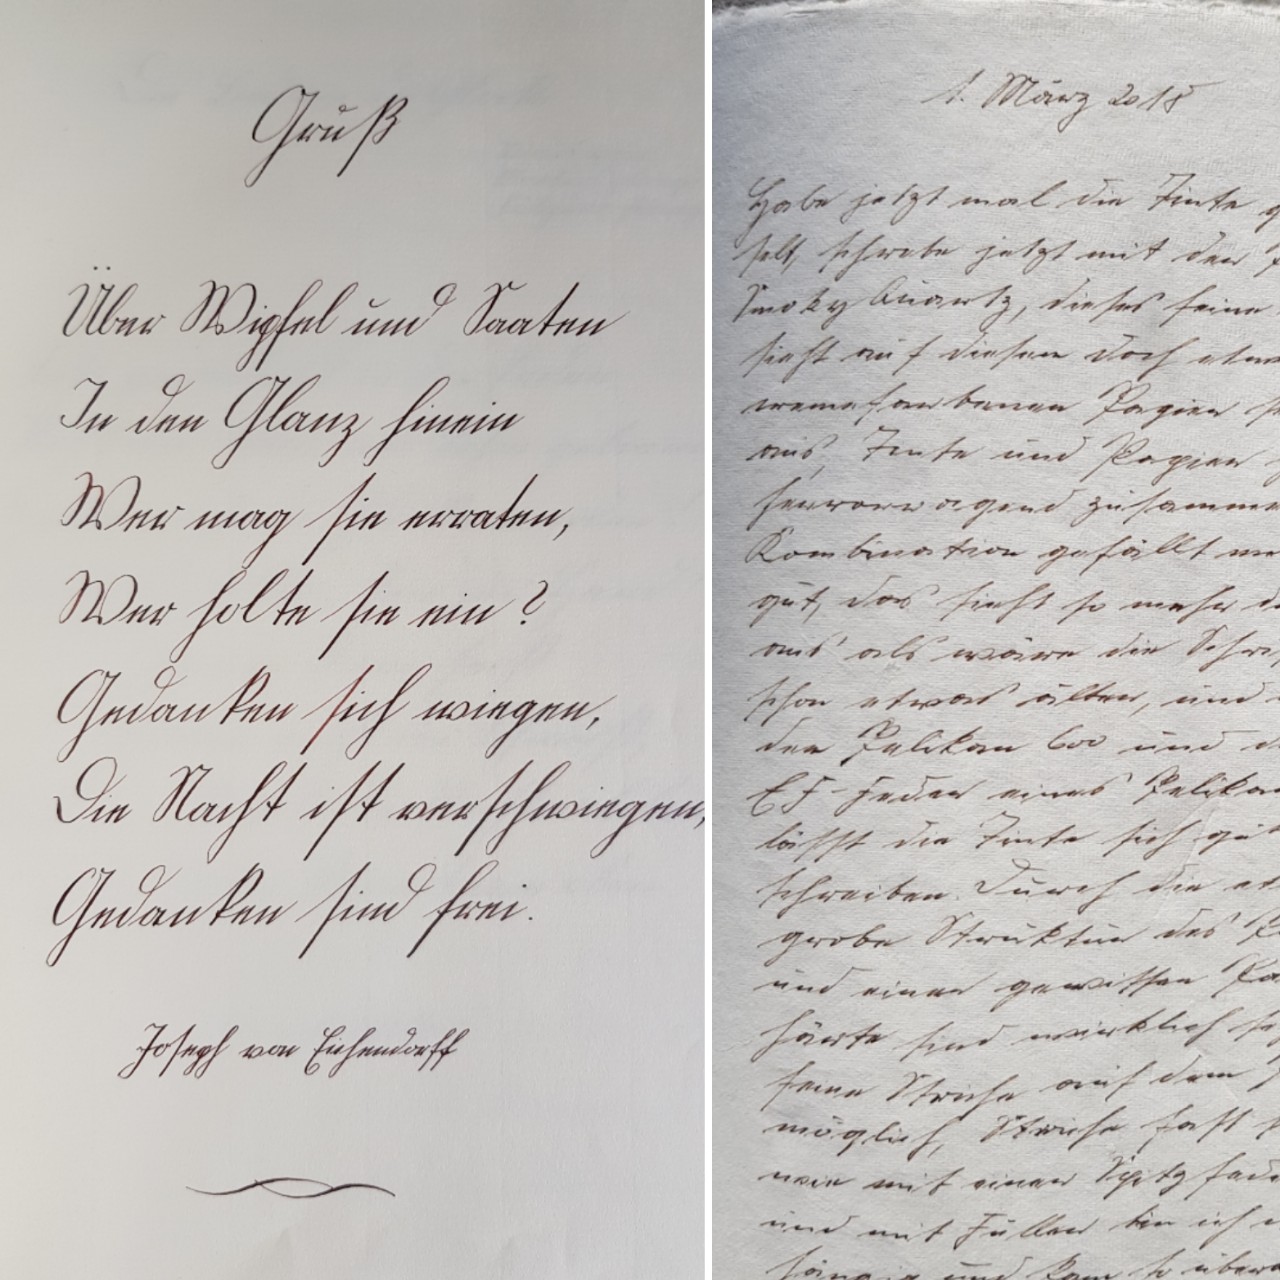 Gruß
Über Wipfel und Saaten
In den Glanz hinein
Wer mag sie erraten,
Wer holte sie ein?
Gedanken sich wiegen,
Die Nacht ist verschwiegen,
Gedanken sind frei.
Joseph von Eichendorff
1. März 2018
Habe jetzt mal die Tinte
selt, schrebe jetzt mit der
Smoky Quartz, dieses feine
sieht auf diesem doch
cremefarbenen Papier
aus, Tinte und Papier
hervorragend zusamme
Kombination gefällt
gut, das sieht so mehr
aus als wäre die
schon etwas älter, und
den Pelikan 600 und
EF-Feder eines Pelikan
lässt die Tinte sich gut
schreiben. Durch die
grobe Struktur des
und einer gewissen
härte sind wirklich
feine Striche auf dem
möglich, Striche fast
wie mit einer Spitzfede
und mit Füller bin ich
und kann so